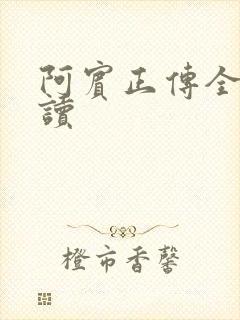 阿賓正傳全
讀
橙市香馨